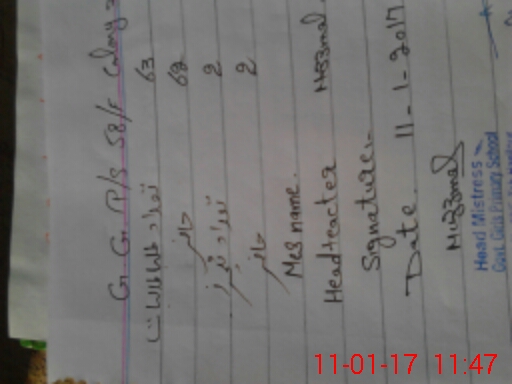 G. G. P/S 58/F Colony
تعداد طالبات 63
حاضر 62
تعداد ٹیچرز 2
حاضر 2
Mes name.
Headteacter Mezzmal
Signature.
Date. 11-1-2017
Muzzmal
Head Mistress
Govt. Girls Primary School
11-01-17 11:47